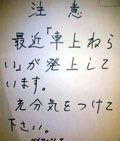 注意
最近「車上ねら
い」が発上して
います。
充分気をつけて
下さい。